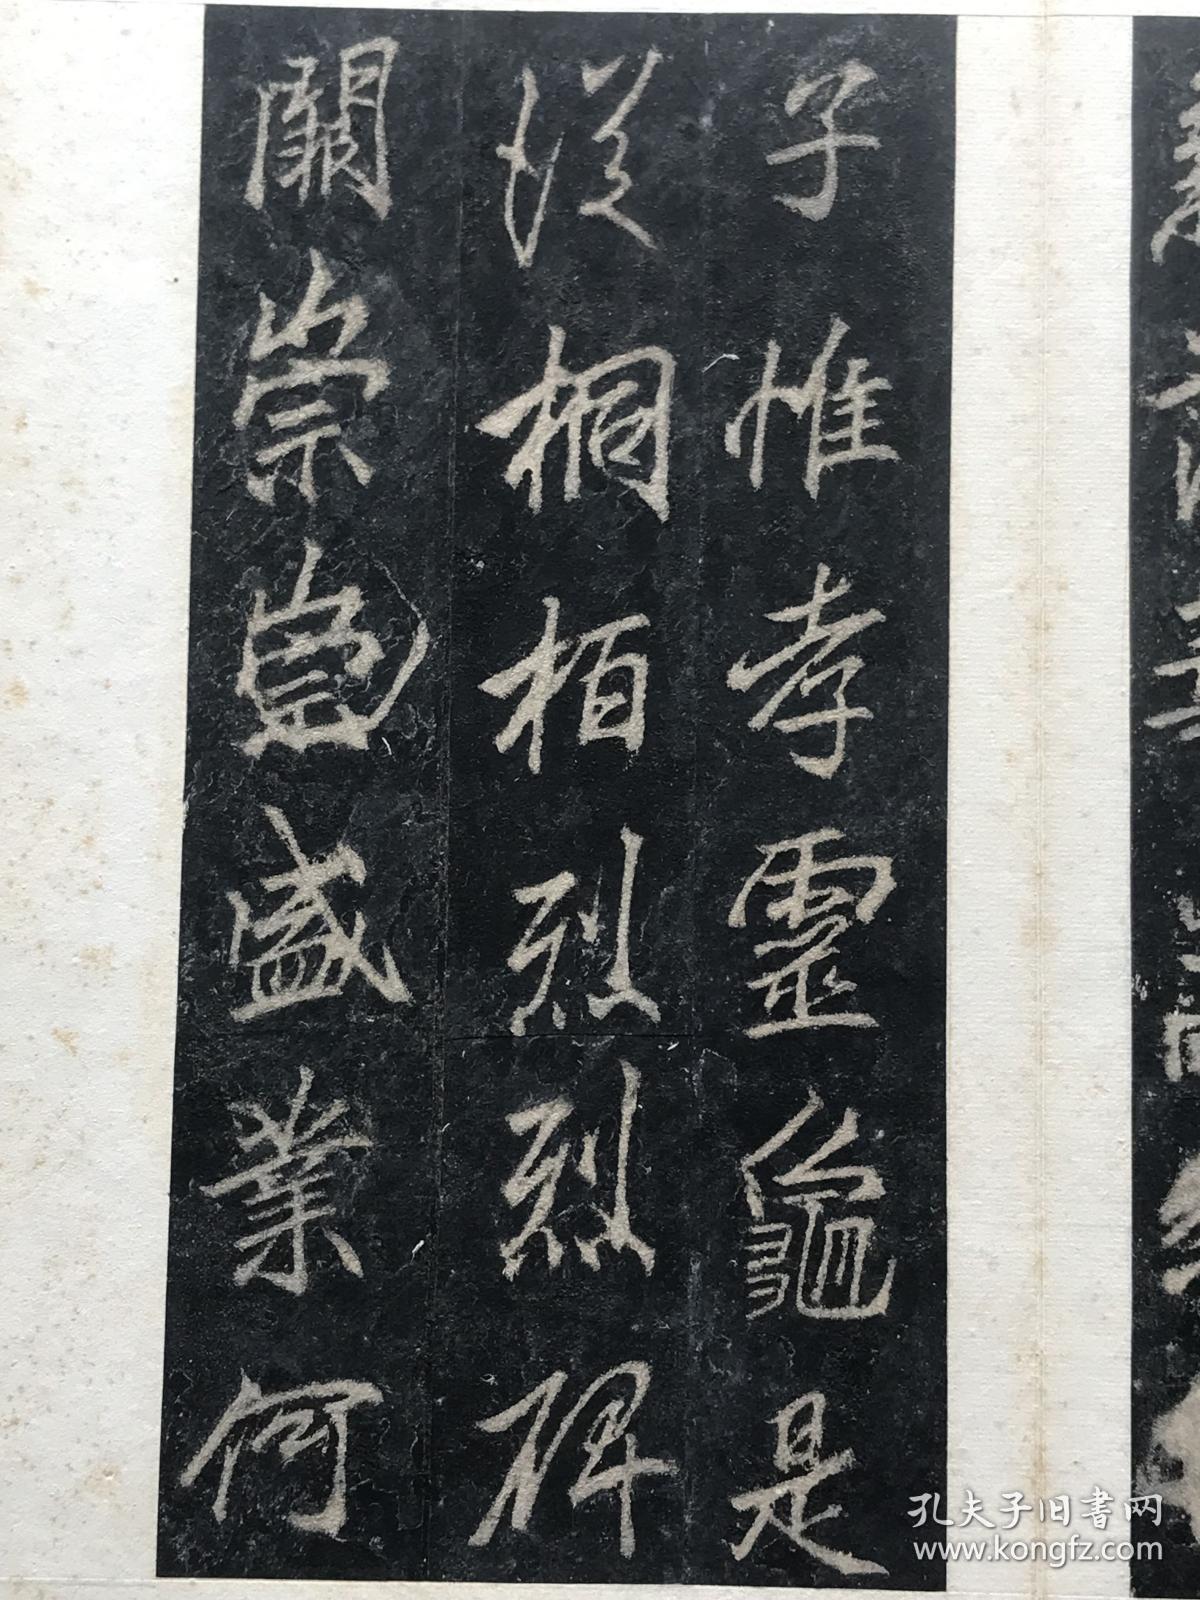 子惟孝靈龜是
從桐栢烈烈碑
闕崇崇盛業何
孔夫子旧書网
www.kongfz.com